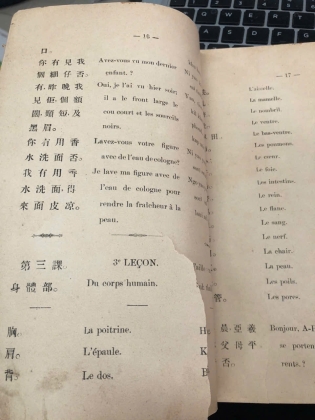 — 16 —
口。
你有見我 Avez-vous vu mon dernier
個孻仔否。 enfant ?
有。昨晚我 Oui, je l'ai vu hier soir;
見佢個額 il a le front large le
闊。頸短。及 cou court et les sourcils
黑眉。 noirs.
你有用香 Lavez-votre figure
水洗面否 avec de l'eau de cologne?
我有用香 Je lave ma figure avec de
水洗面。得 l'eau de cologne pour
來面皮凉。 rendre la fraîcheur à la
peau.
第三課 3e LEÇON.
身體部。 Du corps humain.
胸。 La poitrine.
肩。 L'épaule.
背。 Le dos.
— 17 —
L'aisselle.
La mamelle.
Le nombril.
Le ventre.
Le bas-ventre.
Les poumons.
Le cœur.
Le foie.
Les intestins.
Le rein.
Le flanc.
Le sang.
Le nerf.
La chair.
La peau.
Les poils.
Les pores.
晨。亞羲 Bonjour, A-H
父母平 se porten
否。 rents. ?